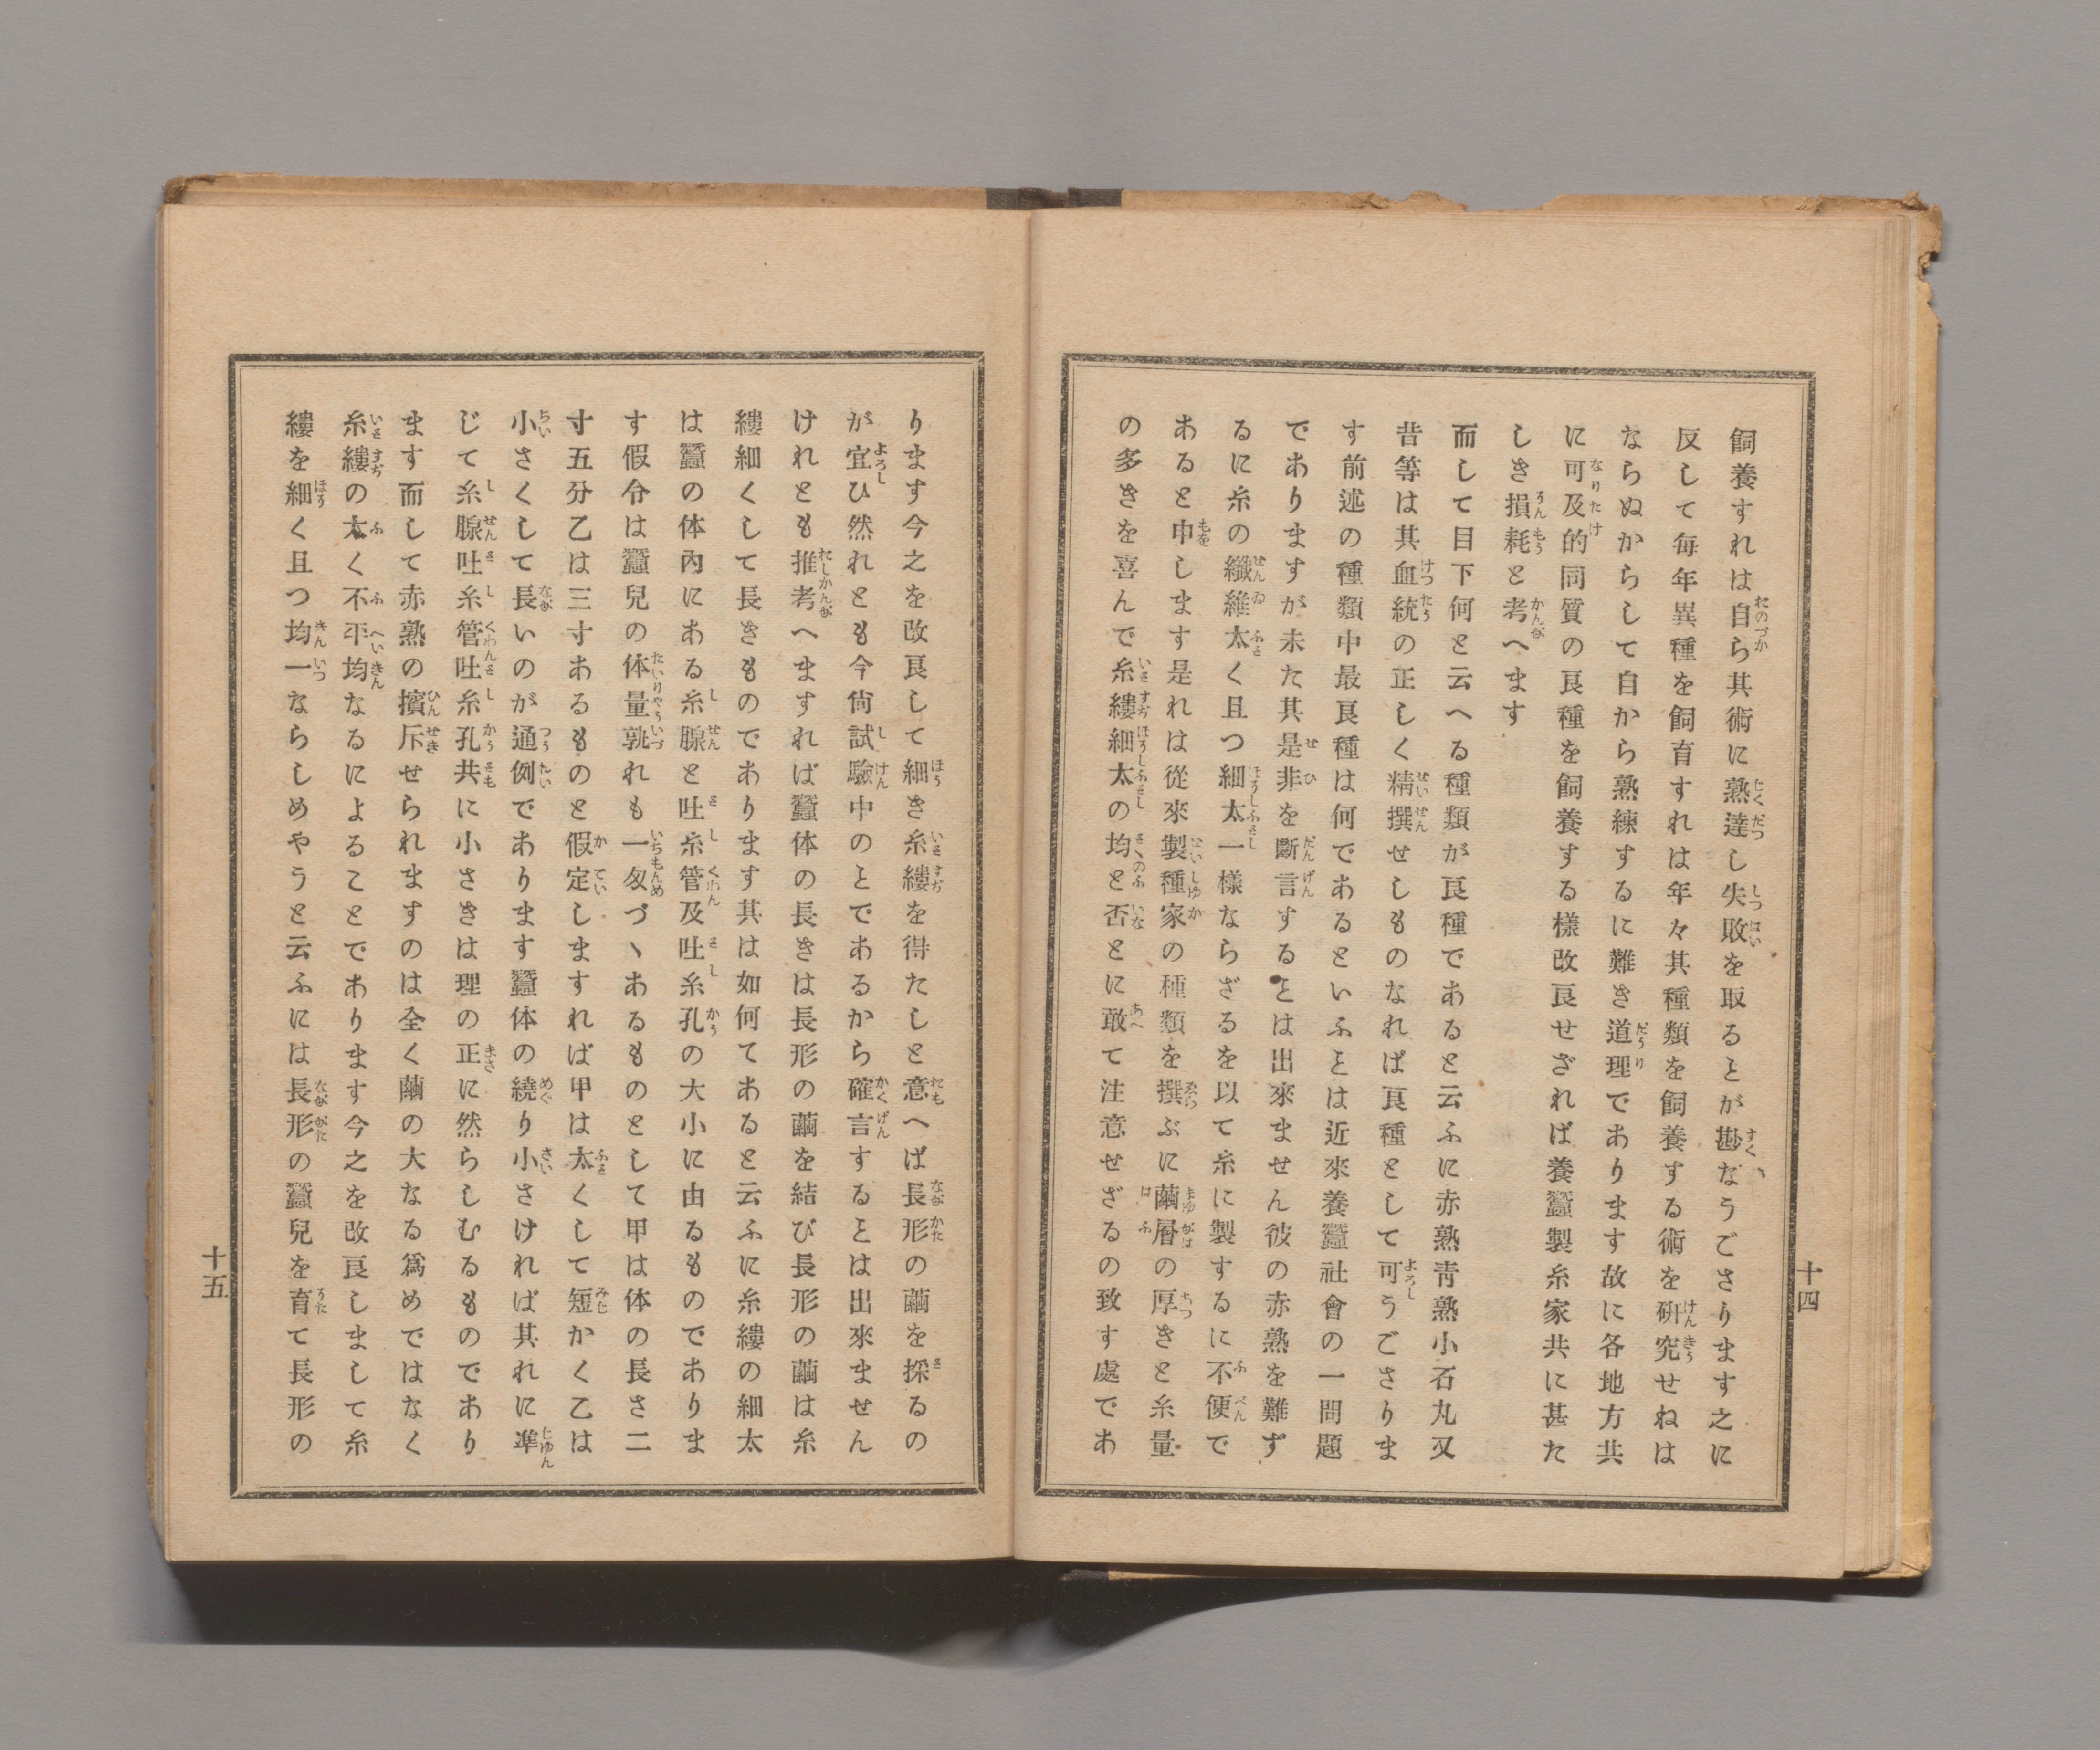 飼養すれは自ら其術に熟達し失敗を取るとが尠なうごさります之に
反して毎年異種を飼育すれは年々其種類を飼養する術を硏究せねは
ならぬからして自から熟練するに難き道理であります故に各地方共
に可及的同質の良種を飼養する樣改良せざれば養蠶製糸家共に甚た
しき損耗と考へます
而して目下何と云へる種類が良種であると云ふに赤熟靑熟小石丸又
昔等は其血統の正しく精撰せしものなれば良種として可うごさりま
す前述の種類中最良種は何であるといふとは近來養蠶社會の一問題
でありますが未た其是非を斷言するとは出來ません彼の赤熟を難ず
るに糸の纎維太く且つ細太一樣ならざるを以て糸に製するに不便で
あると申します是れは從來製種家の種類を撰ぶに繭層の厚きと糸量
の多きを喜んで糸縷細太の均と否とに敢て注意せざるの致す處であ
十四
ります今之を改良して細き糸縷を得たしと意へば長形の繭を採るの
が宜ひ然れとも今尙試驗中のとであるから確言するとは出來ません
けれとも推考へますれば蠶体の長きは長形の繭を結び長形の繭は糸
縷細くして長きものであります其は如何てあると云ふに糸縷の細太
は蠶の体內にある糸腺と吐糸管及吐糸孔の大小に由るものでありま
す假令は蠶兒の体量孰れも一匁づゝあるものとして甲は体の長さ二
寸五分乙は三寸あるものと假定しますれば甲は太くして短かく乙は
小さくして長いのが通例であります蠶体の繞り小さければ其れに準
じて糸腺吐糸管吐糸孔共に小さきは理の正に然らしむるものであり
ます而して赤熟の擯斥せられますのは全く繭の大なる爲めではなく
糸縷の太く不平均なるによることであります今之を改良しまして糸
縷を細く且つ均一ならしめやうと云ふには長形の蠶兒を育て長形の
十五